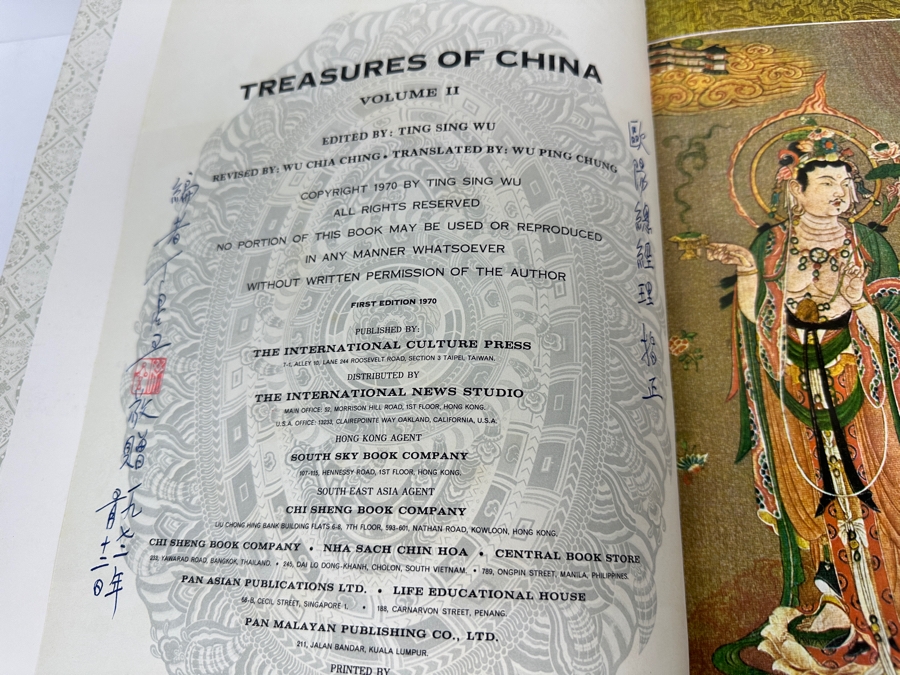 TREASURES OF CHINA
VOLUME II
EDITED BY: TING SING WU
REVISED BY: WU CHIA CHING • TRANSLATED BY: WU PING CHUNG
COPYRIGHT 1970 BY TING SING WU
ALL RIGHTS RESERVED
NO PORTION OF THIS BOOK MAY BE USED OR REPRODUCED
IN ANY MANNER WHATSOEVER
WITHOUT WRITTEN PERMISSION OF THE AUTHOR
FIRST EDITION 1970
PUBLISHED BY:
THE INTERNATIONAL CULTURE PRESS
7-1, ALLEY 10, LANE 244 ROOSEVELT ROAD, SECTION 3 TAIPEI, TAIWAN.
DISTRIBUTED BY
THE INTERNATIONAL NEWS STUDIO
MAIN OFFICE: 92, MORRISON HILL ROAD, 1ST FLOOR, HONG KONG.
U.S.A. OFFICE: 13233, CLAIREPOINTE WAY OAKLAND, CALIFORNIA, U.S.A.
HONG KONG AGENT
SOUTH SKY BOOK COMPANY
107-115, HENNESSY ROAD, 1ST FLOOR, HONG KONG.
SOUTH EAST ASIA AGENT
CHI SHENG BOOK COMPANY
LIU CHONG HING BANK BUILDING FLATS 6-8, 7TH FLOOR, 593-601, NATHAN ROAD, KOWLOON, HONG KONG.
CHI SHENG BOOK COMPANY • NHA SACH CHIN HOA • CENTRAL BOOK STORE
233, YAWARAD ROAD, BANGKOK, THAILAND. • 245, DAI LO DONG-KHANH, CHOLON, SOUTH VIETNAM. • 789, ONGPIN STREET, MANILA, PHILIPPINES.
PAN ASIAN PUBLICATIONS LTD. • LIFE EDUCATIONAL HOUSE
CECIL STREET, SINGAPORE 1. • 188, CARNARVON STREET, PENANG.
PAN MALAYAN PUBLISHING CO., LTD.
211, JALAN BANDAR, KUALA LUMPUR.
PRINTED BY
歐陽總經理 指正
編者
敬贈
一九七二年